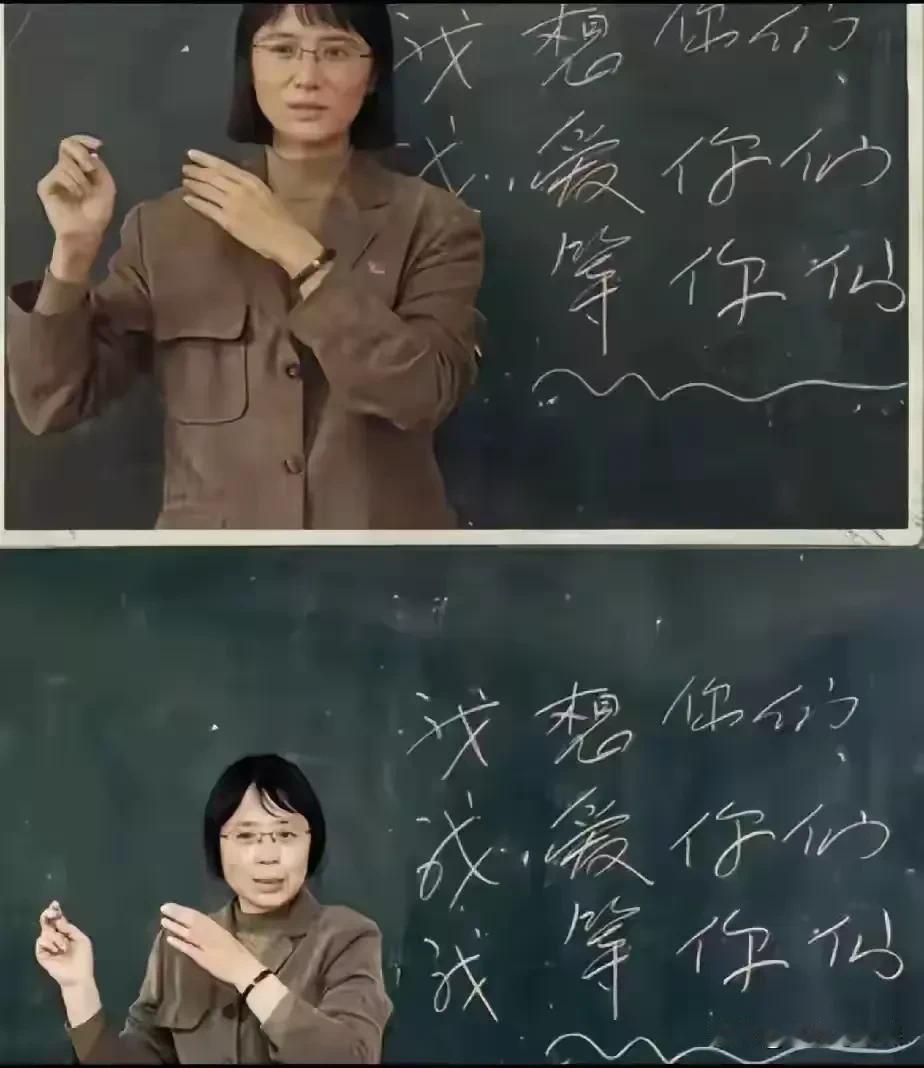 我想你们
我.爱你们
等你们
我想你们
我.爱你们
我等你们